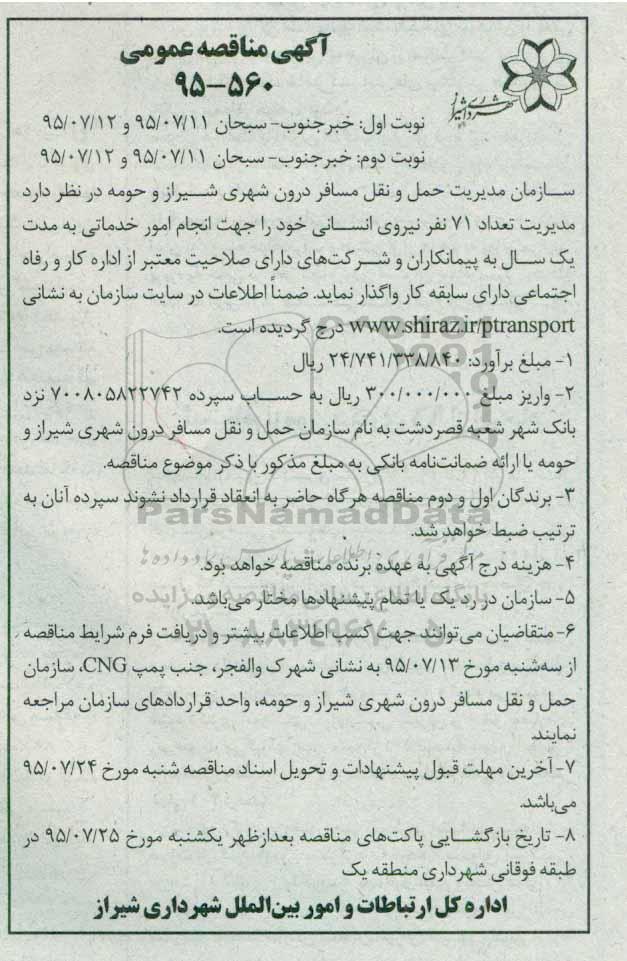 آگهی مناقصه عمومی
۹۵-۵۶۰
شهرداری شیراز
نوبت اول: خبرجنوب- سبحان ۹۵/۰۷/۱۱ و ۹۵/۰۷/۱۲
نوبت دوم: خبرجنوب- سبحان ۹۵/۰۷/۱۱ و ۹۵/۰۷/۱۲
سازمان مدیریت حمل و نقل مسافر درون شهری شیراز و حومه در نظر دارد
مدیریت تعداد ۷۱ نفر نیروی انسانی خود را جهت انجام امور خدماتی به مدت
یک سال به پیمانکاران و شرکت‌های دارای صلاحیت معتبر از اداره کار و رفاه
اجتماعی دارای سابقه کار واگذار نماید. ضمناً اطلاعات در سایت سازمان به نشانی
www.shiraz.ir/ptransport درج گردیده است.
۱- مبلغ برآورد: ۲۴/۷۴۱/۳۳۸/۸۴۰ ریال
۲- واریز مبلغ ۳۰۰/۰۰۰/۰۰۰ ریال به حساب سپرده ۷۰۰۸۰۵۸۲۲۷۴۲ نزد
بانک شهر شعبه قصردشت به نام سازمان حمل و نقل مسافر درون شهری شیراز و
حومه یا ارائه ضمانت‌نامه بانکی به مبلغ مذکور با ذکر موضوع مناقصه.
۳- برندگان اول و دوم مناقصه هرگاه حاضر به انعقاد قرارداد نشوند سپرده آنان به
ترتیب ضبط خواهد شد.
ParsNamadData
۴- هزینه درج آگهی به عهده برنده مناقصه خواهد بود.
۵- سازمان در رد یک یا تمام پیشنهادها مختار می‌باشد.
۶- متقاضیان می‌توانند جهت کسب اطلاعات بیشتر و دریافت فرم شرایط مناقصه
از سه‌شنبه مورخ ۹۵/۰۷/۱۳ به نشانی شهرک والفجر، جنب پمپ CNG، سازمان
حمل و نقل مسافر درون شهری شیراز و حومه، واحد قراردادهای سازمان مراجعه
نمایند.
۷- آخرین مهلت قبول پیشنهادات و تحویل اسناد مناقصه شنبه مورخ ۹۵/۰۷/۲۴
می‌باشد.
۸- تاریخ بازگشایی پاکت‌های مناقصه بعدازظهر یکشنبه مورخ ۹۵/۰۷/۲۵ در
طبقه فوقانی شهرداری منطقه یک
اداره کل ارتباطات و امور بین‌الملل شهرداری شیراز